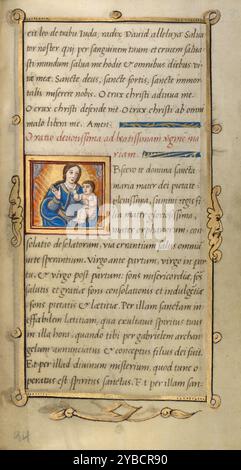 cit leo de tribu Iuda, radix David alleluya Salva
tor noster qui per sanguinem tuum et crucem salua
sti mundum salua me hodie & omnibus diebus vi
tæ meæ. Sancte deus, sancte fortis, sancte immor
talis miserere nobis. O crux christi adiuva me.
O crux christi defende me. O crux christi ab omni
malo libera me. Amen.
Oratio devotissima ad beatissimam virginē ma
riam.
te domina sancta
maria mater dei pietate
plenissima, summi regis fi
lia mater gloriosissima,
mater orphanorum: con
solatio desolatorum, via errantium salus omniū
in te sperantium. Virgo ante partum, virgo in par
tu, & virgo post partum: fons misericordiæ, fōs sa
lutis et gratiæ fons consolationis et indulgentiæ
fons pietatis & letitiæ. Per illam sanctam in
effabilem letitiam, qua exultauit spiritus tuus
in illa hora, quando tibi per gabrielem archan
gelum annunciatus & conceptus filius dei fuit.
Et per illud divinum misterium, quod tunc o
peratus est spiritus sanctus. Et per illam san